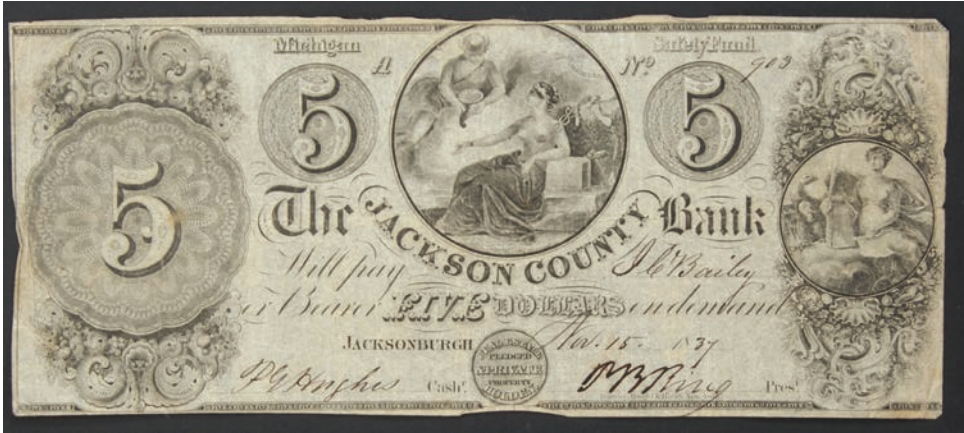 Michigan Safety Fund
A No 903
5 5 5
The JACKSON COUNTY Bank
Will pay J C Bailey
or Bearer FIVE DOLLARS on demand
JACKSONBURGH Nov. 15 1837
REAL ESTATE
PLEDGED
& PRIVATE
PROPERTY
HOLDEN
Hughes Cashr. Pres.